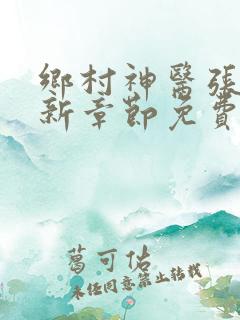 鄉村神醫張
新章節免費
葛可佑
未经同意禁止转载